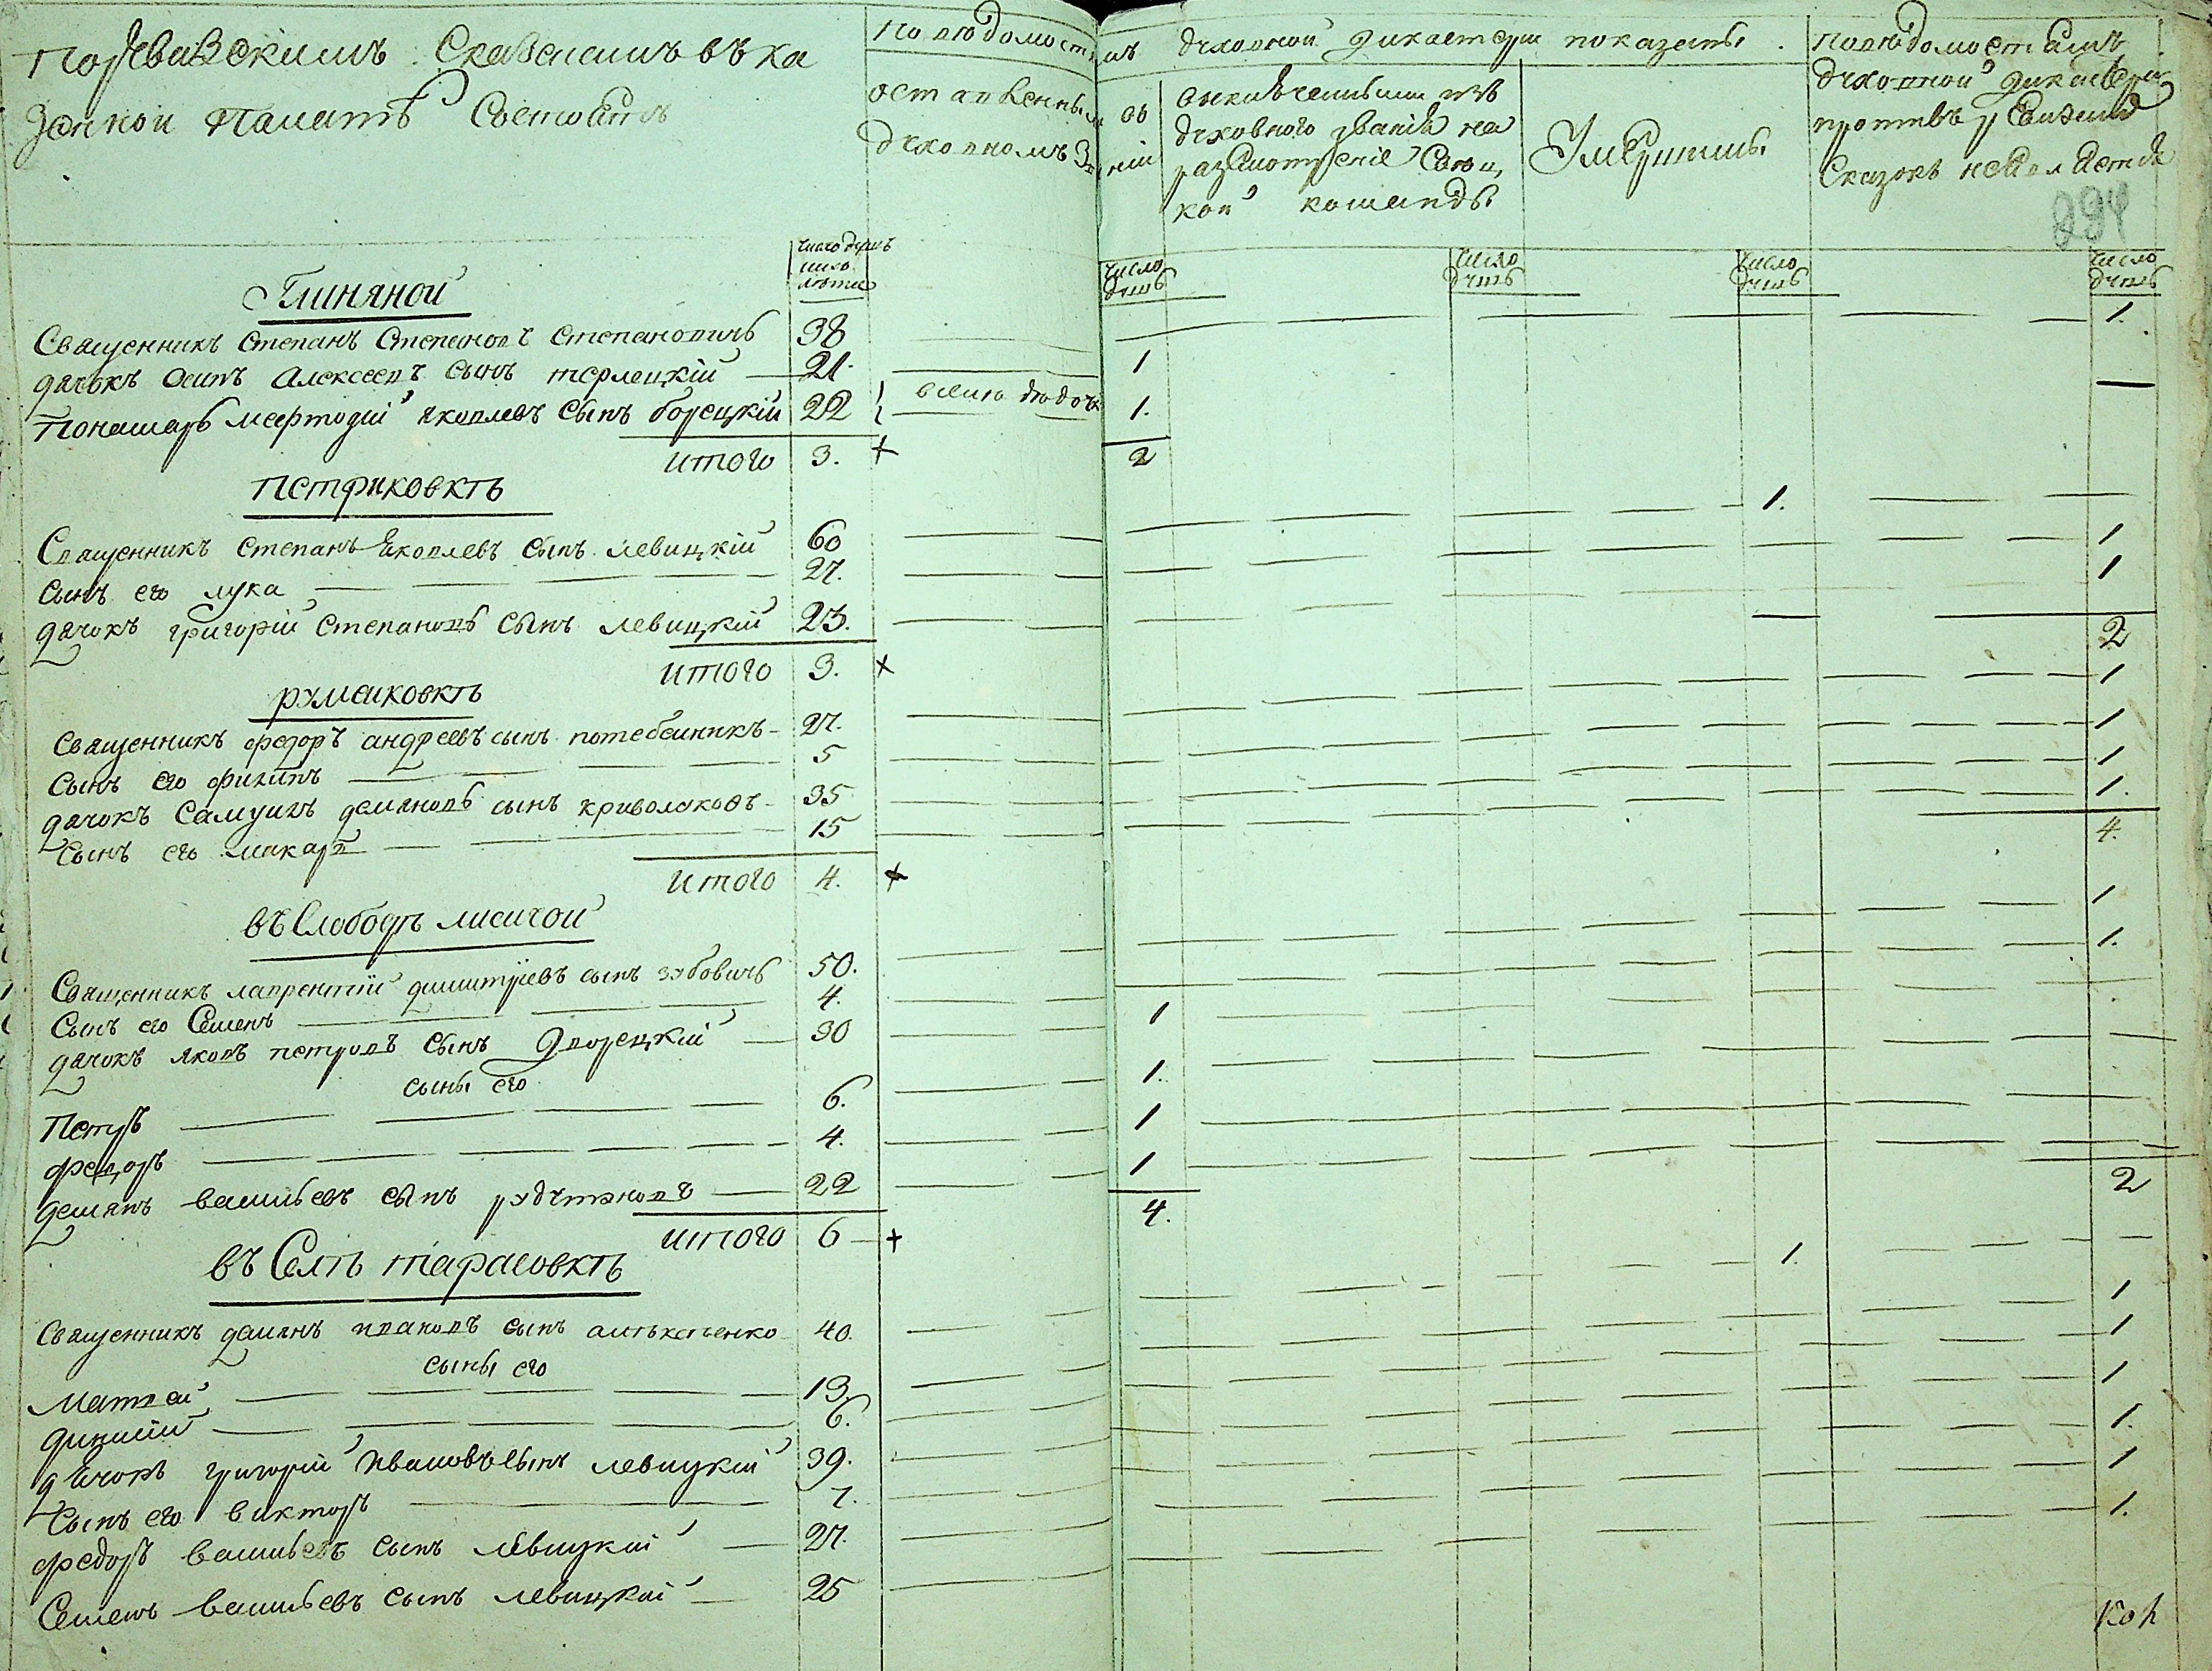 По ревизскимъ Сказкамъ въ ка
зенной Палатѣ Состоятъ
По вѣдомост
амъ духовной дикастеріи показаты
оставленны
духовномъ Зв
ов
ніи
выключенными изъ
духовного званія на
разсмотреніе Свѣц
кой команды
Умершимы
По вѣдомостамъ
духовной дикастеріи
противъ ревизкихъ
Сказокъ не явлается
294
число душъ
ихъ
лѣта
число
душъ
число
душъ
число
душъ
число
душъ
Глиняной
Священникъ Степанъ Степановъ Степановичъ 38 — — — — 1.
дячокъ Осипъ Алексеевъ сынъ терлецкій — 21. 1 —
Пономарь мефтодій яковлевъ сынъ борецкій 22 1.
итого 3. + 2
Петриковкѣ
Священникъ Степанъ Яковлевъ сынъ левицкій 60 — — — 1. — —
сынъ его лука — — — — 27. — — — — 1
дячокъ григорій Степановъ сынъ левицкій 23. — — — — 1
итого 3. + — 2
румаковкѣ
Священникъ федоръ андреевъ сынъ потебенникъ - 27. — — — — 1
сынъ его филипъ — — — 5 — — — — 1
дячокъ Самуилъ демяновъ сынъ криволаковъ - 35 — — — — 1
Сынъ его макаръ — — — 15 — — — — 1.
итого 4. + 4.
въ Слободѣ лисичой
Священникъ лаврентій димитріевъ сынъ зубовичъ 50. — — — — 1
Сынъ его Семенъ — — — 4. — — — — 1.
дячокъ яковъ петровъ сынъ Дворецкій — 30 — 1 — — —
сыны его
Петръ — — — — 6. — 1. — — —
федоръ — — — — 4. — 1 — — —
демянъ васильевъ сынъ — 22 — 1 — — —
итого 6 — + 4. 2
въ Селѣ тарасовкѣ
Священникъ демянъ ивановъ сынъ 40. — — — 1. — —
сыны его
Матвей — — — — 13. — — — — 1
— — — — 6. — — — — 1
дячокъ григорій Ивановъ сынъ левицкій 39. — — — — 1
Сынъ его викторъ — — 7. — — — — 1.
федоръ васильевъ сынъ левицкій — 27. — — — — 1
Семенъ васильевъ сынъ левицкій — 25 — — — — 1.